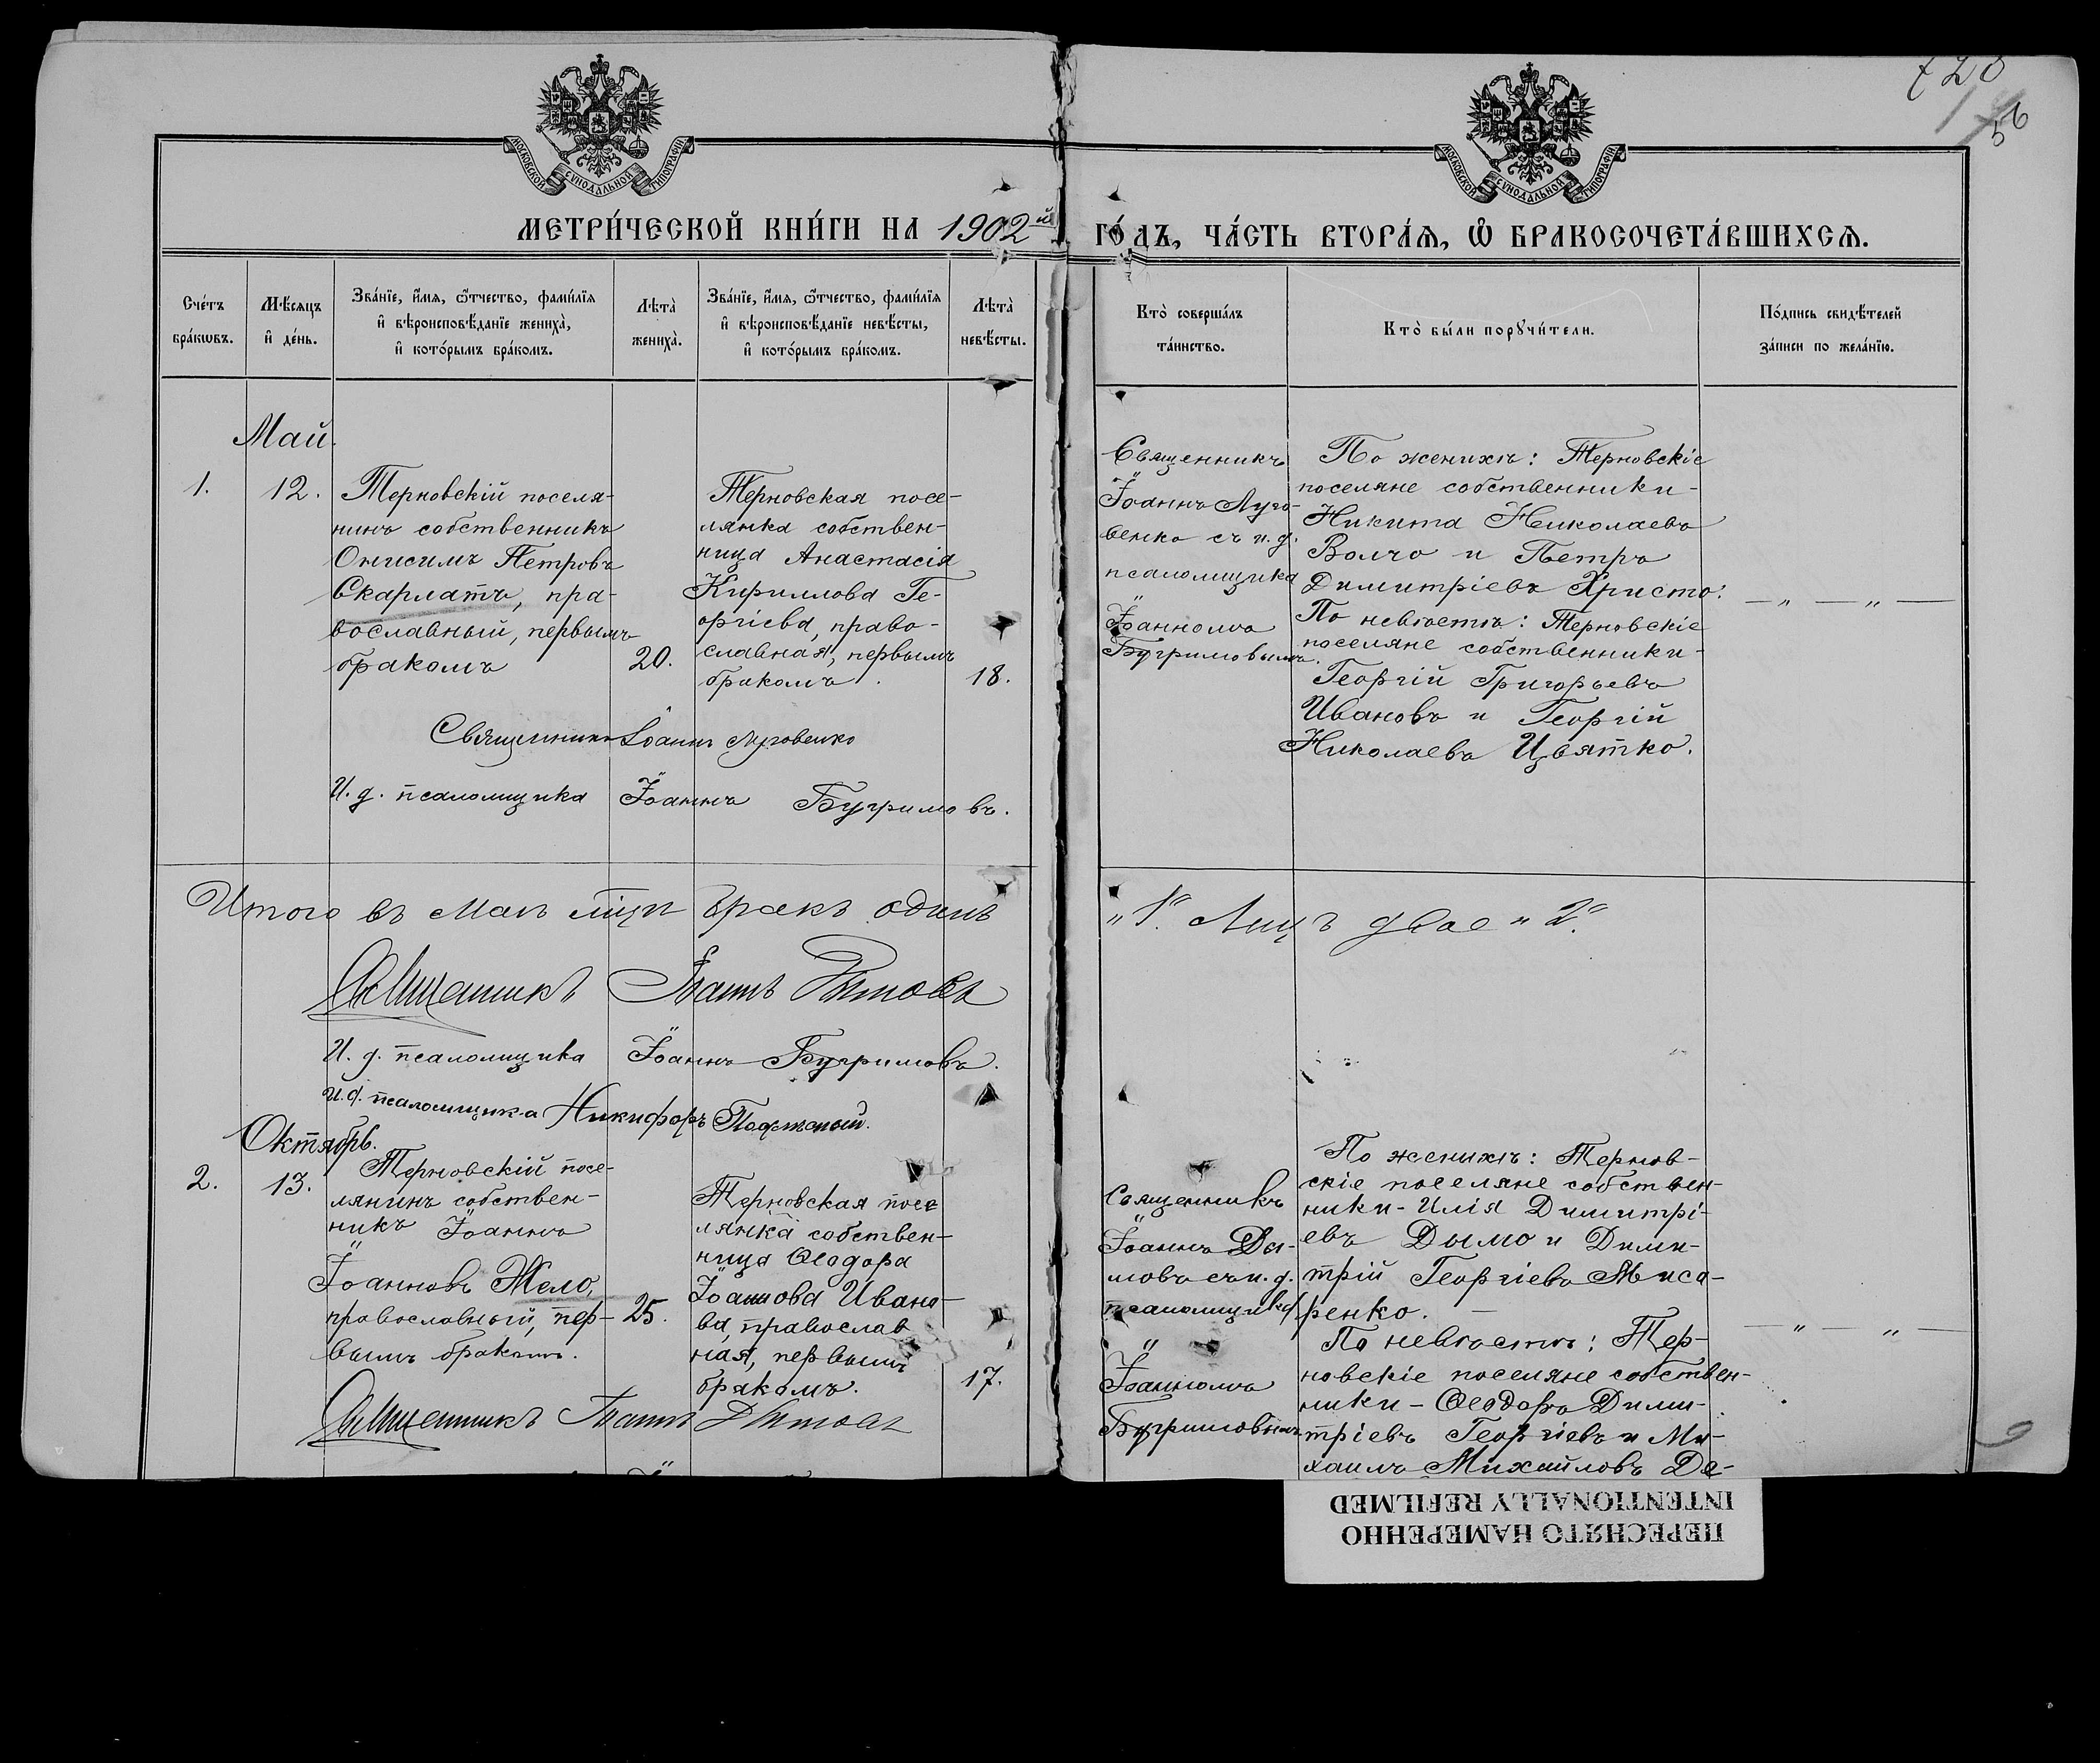 720
56
МОСКОВСКОЙ СѴНОДАЛЬНОЙ ТИПОГРАФІИ
МОСКОВСКОЙ СѴНОДАЛЬНОЙ ТИПОГРАФІИ
МЕТРИ́ЧЕСКОЙ КНИ́ГИ НА 1902й ГО́ДЪ, ЧА́СТЬ ВТОРА́Я, Ѡ БРАКОСОЧЕТА́ВШИХСѦ.
Сче́тъ
бра́кѡвъ.
Мѣ́сѧцъ
и҆ де́нь.
Зва́нїе, и҆́мѧ, ѻ҆́тчество, фами́лїѧ
и҆ вѣроисповѣ́данїе жениха̀,
и҆ кото́рымъ бра́комъ.
Лѣта̀
жениха̀.
Зва́нїе, и҆́мѧ, ѻ҆́тчество, фами́лїѧ
и҆ вѣроисповѣ́данїе невѣ́сты,
и҆ кото́рымъ бра́комъ.
Лѣта̀
невѣ́сты.
Кто̀ соверша́лъ
та́инство.
Кто̀ бы́ли порꙋчи́тели.
По́дпись свидѣ́телей
за́писи по жела́нїю.
Май.
1.
12.
Терновскій поселя-
нинъ собственникъ
Онисимъ Петровъ
Скарлатъ, пра-
вославный, первымъ
бракомъ
20.
Терновская посе-
лянка собствен-
ница Анастасія
Кириллова Ге-
оргіева, право-
славная, первымъ
бракомъ.
18.
Священникъ
Іоаннъ Луго-
венко съ и. д.
псаломщика
Іоанномъ
Бугримовымъ.
По женихѣ: Терновскіе
поселяне собственники-
Никита Николаевъ
Волчо и Петръ
Димитріевъ Христо.
По невѣстѣ: Терновскіе
поселяне собственники-
Георгій Григорьевъ
Ивановъ и Георгій
Николаевъ Цвятко.
— „ — „ —
Священникъ Іоаннъ Луговенко
И. д. псаломщика Іоаннъ Бугримовъ.
Итого въ маѣ мцѣ бракъ одинъ „1". Лицъ двое „2".
Священникъ Іоаннъ Дымовъ
И. д. псаломщика Іоаннъ Бугримовъ.
И. д. псаломщика Никифоръ
Октябрь.
2.
13.
Терновскій посе-
лянинъ собствен-
никъ Іоаннъ
Іоанновъ Жело,
православный, пер-
вымъ бракомъ.
25.
Терновская посе
лянка собствен-
ница Ѳеодора
Іоаннова Ивано-
ва, православ
ная, первымъ
бракомъ.
17.
Священникъ
Іоаннъ Ды-
мовъ съ и. д.
псаломщика
Іоанномъ
Бугримовымъ
По женихѣ: Тернов-
скіе поселяне собствен-
ники - Илія Димитрі-
евъ Дымо и Дими-
трій Георгіевъ Миса-
ренко. —
По невѣстѣ: Тер-
новскіе поселяне собствен-
ники - Ѳеодоръ Дими-
тріевъ Георгіевъ и Ми-
хаилъ Михайловъ Де-
— „ — „ —
Священникъ Іоаннъ Дымовъ
ПЕРЕСНЯТО НАМЕРЕННО
INTENTIONALLY REFILMED